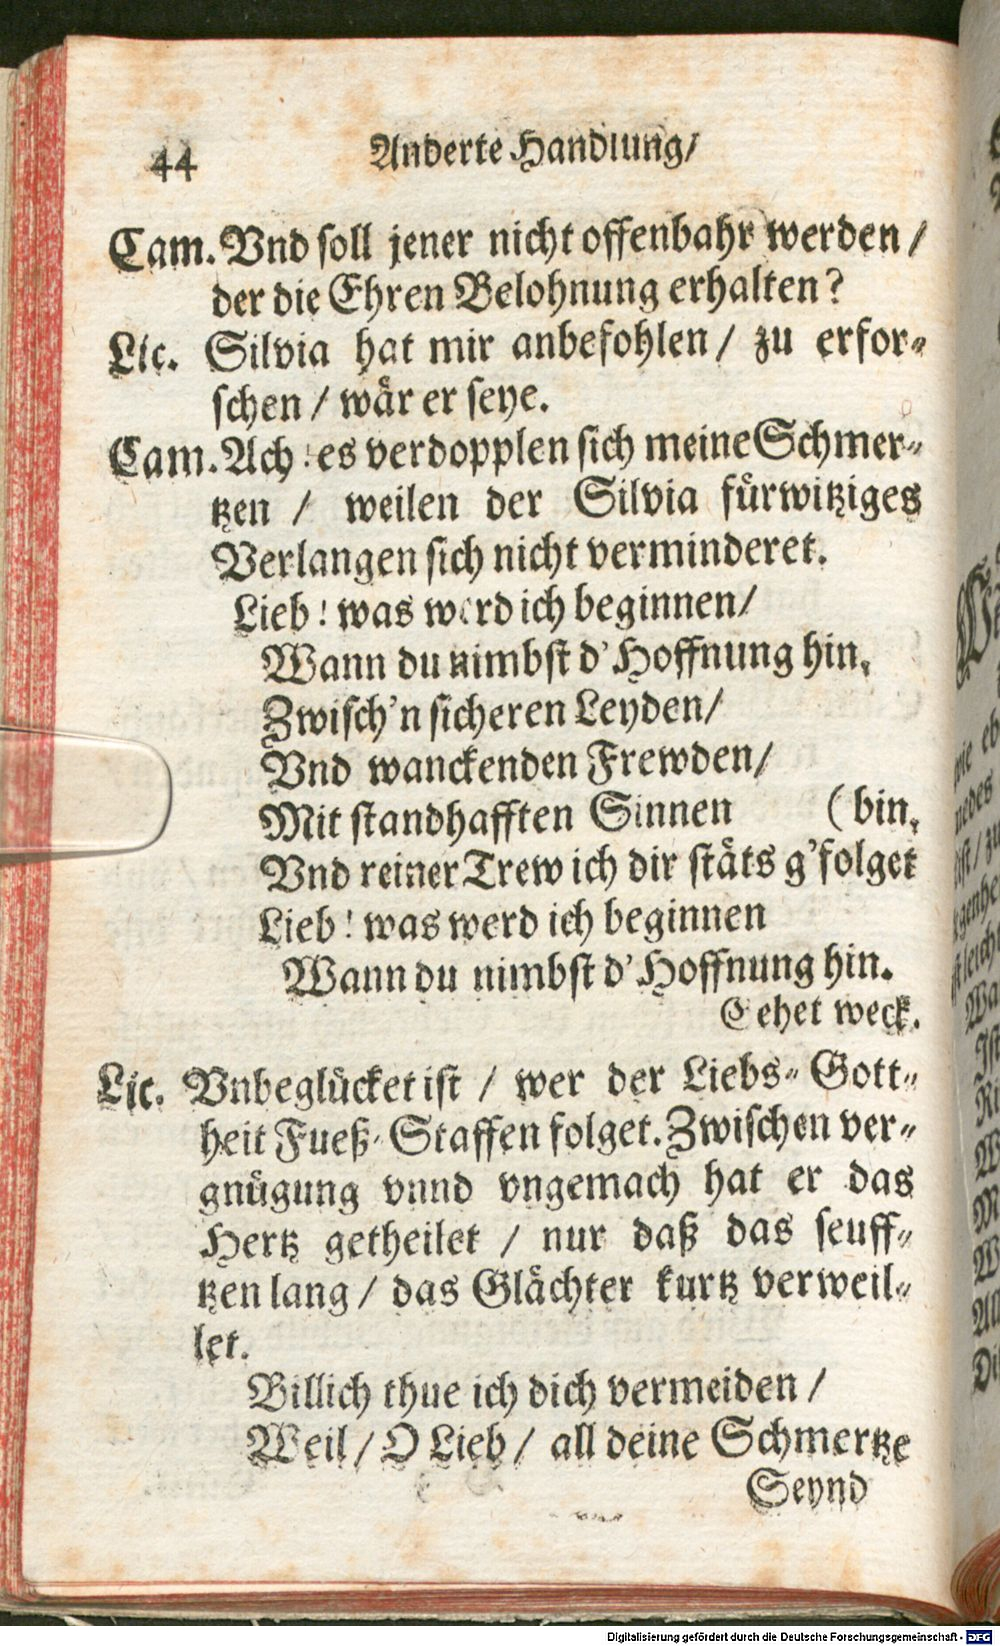 44 Anderte Handlung/
Cam. Vnd soll jener nicht offenbahr werden /
der die Ehren Belohnung erhalten?
Lic. Silvia hat mir anbefohlen / zu erfor-
schen / wär er seye.
Cam. Ach! es verdopplen sich meine Schmer-
tzen / weilen der Silvia fürwitziges
Verlangen sich nicht verminderet.
Lieb! was werd ich beginnen/
Wann du nimbst d'Hoffnung hin.
Zwisch'n sicheren Leyden/
Vnd wanckenden Frewden/
Mit standhafften Sinnen (bin.
Vnd reiner Trew ich dir stäts g'folget
Lieb! was werd ich beginnen
Wann du nimbst d'Hoffnung hin.
Gehet weck.
Lic. Vnbeglücket ist / wer der Liebs-Gott-
heit Fueß-Staffen folget. Zwischen ver-
gnügung vnnd vngemach hat er das
Hertz getheilet / nur daß das seuff-
tzen lang / das Glächter kurtz verweil-
let.
Billich thue ich dich vermeiden /
Weil / O Lieb / all deine Schmertze
Seynd
Digitalisierung gefördert durch die Deutsche Forschungsgemeinschaft - DFG